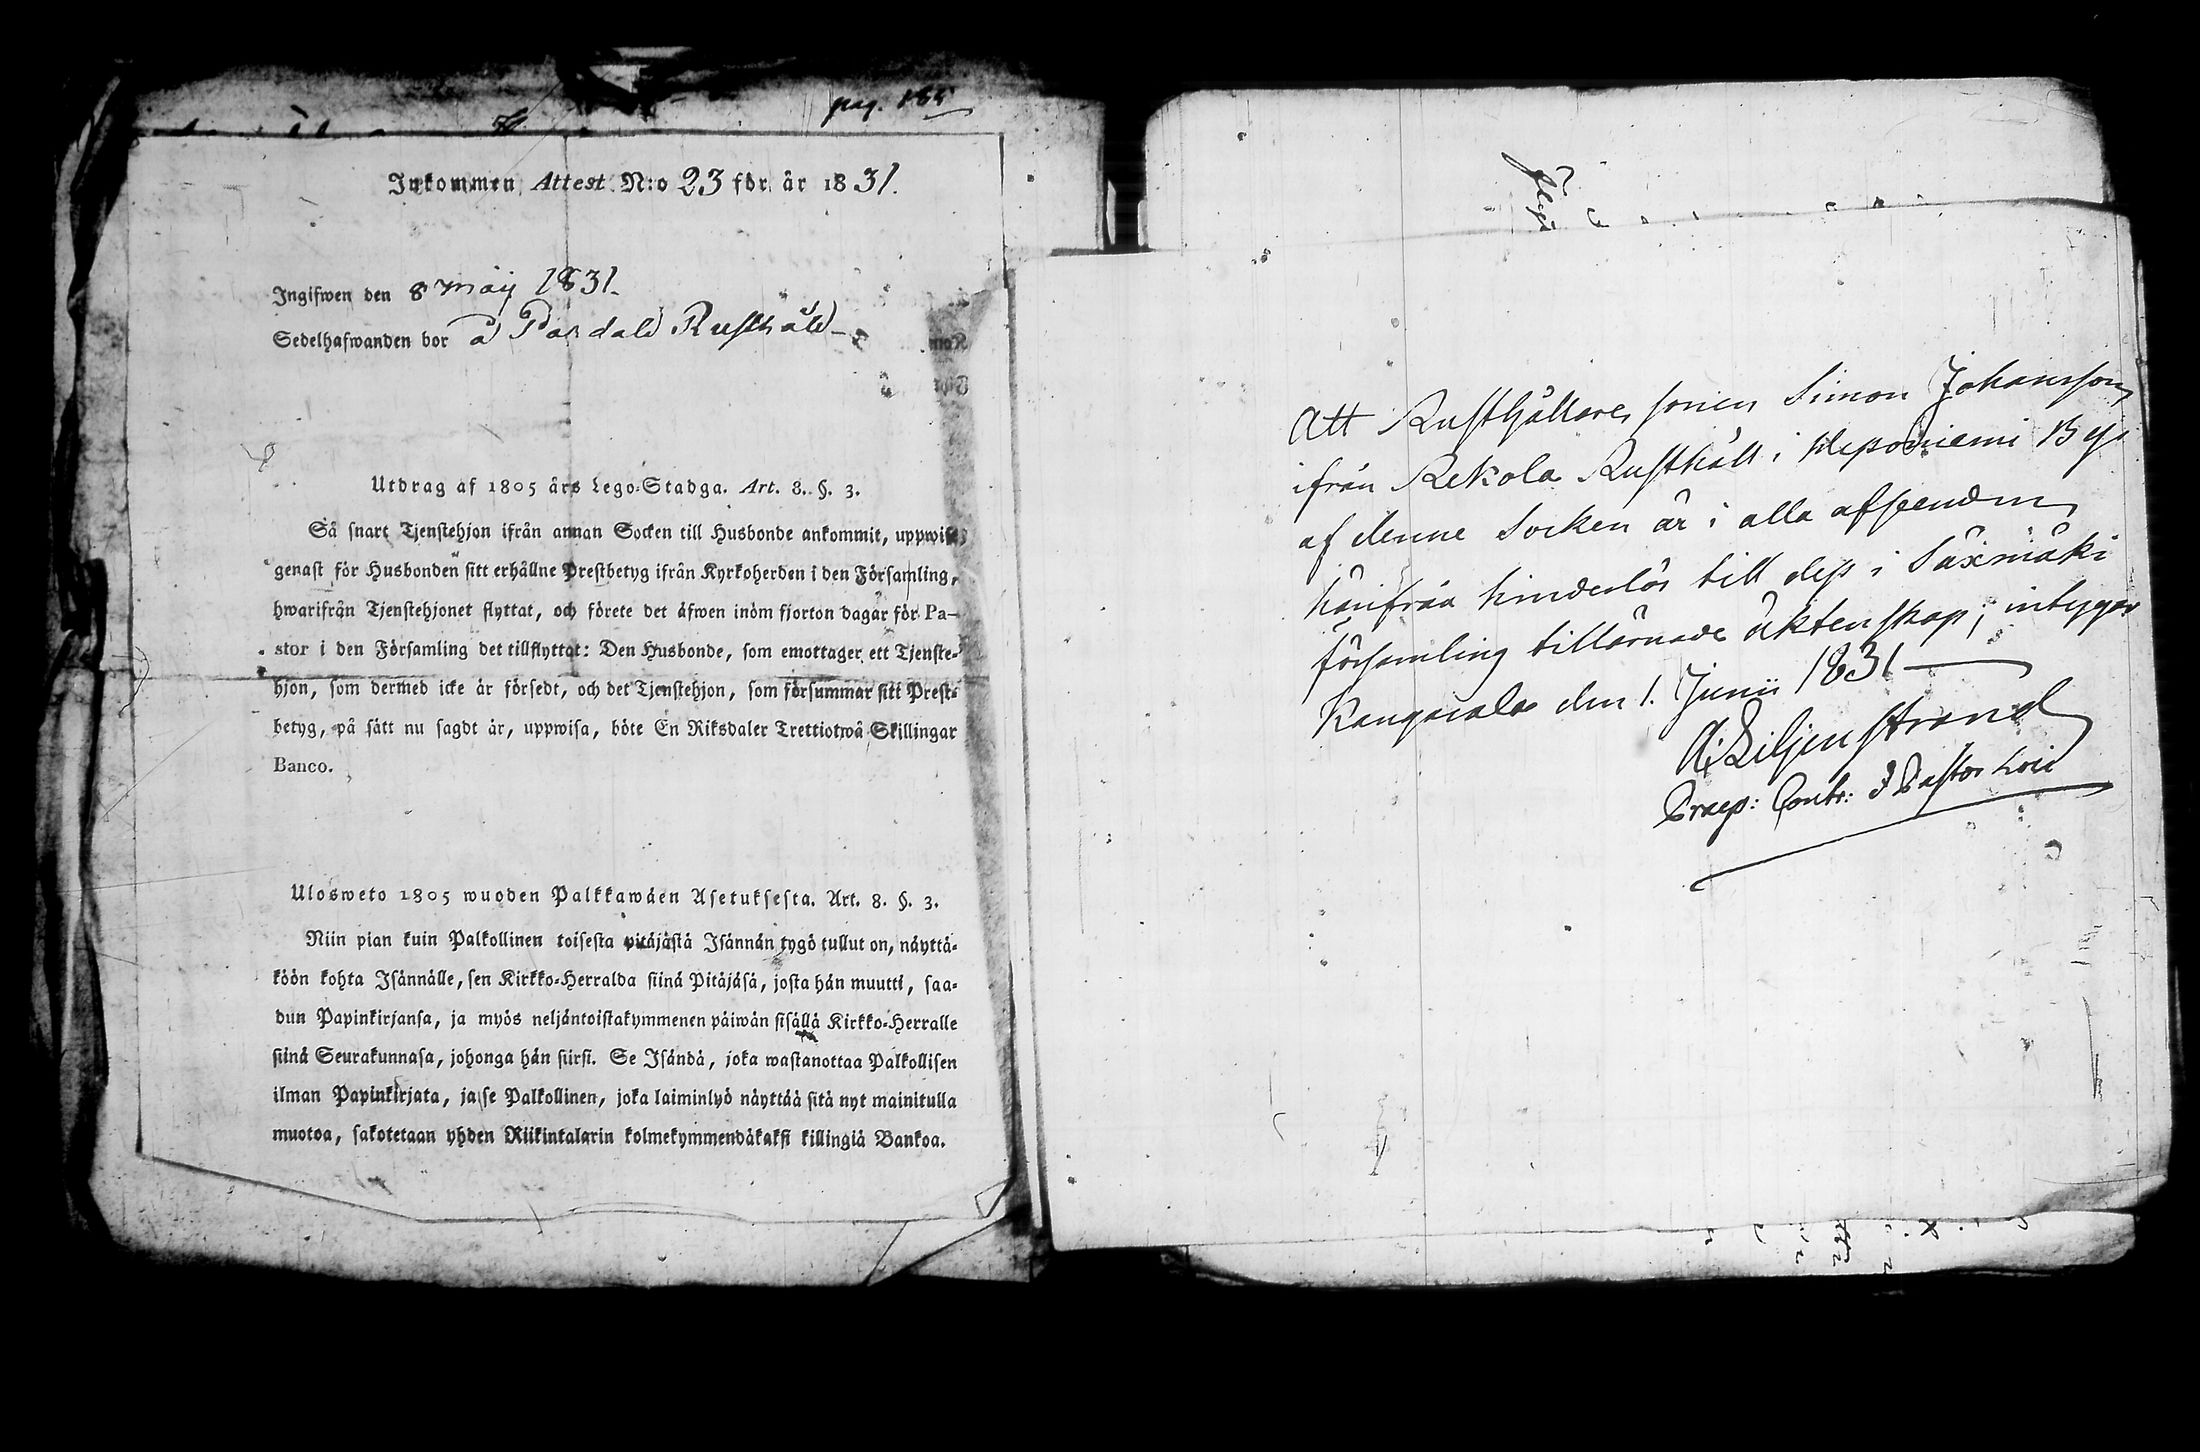 pag. 185
Inkommen Attest N:o 23 för år 1831.
Ingifwen den 8 Maij 1831.
Sedelhafwanden bor å Pardala Rusthåld
Utdrag af 1805 års Lego-Stadga. Art. 8. §. 3.
Så snart Tjenstehjon ifrån annan Socken till Husbonde ankommit, uppwise
genast för Husbonden sitt erhållne Prestbetyg ifrån Kyrkoherden i den Församling,
hwarifrån Tjenstehjonet flyttat, och förete det äfwen inom fjorton dagar för Pa-
stor i den Församling det tillflyttat: Den Husbonde, som emottager ett Tjenste-
hjon, som dermed icke är försedt, och det Tjenstehjon, som försummar sitt Prest-
betyg, på sätt nu sagdt är, uppwisa, böte En Riksdaler Trettiotwå Skillingar
Banco.
Ulosweto 1805 wuoden Palkkawäen Asetuksesta. Art. 8. §. 3.
Niin pian kuin Palkollinen toisesta pitäjästä Isännän tygö tullut on, näyttä-
köön kohta Isännälle, sen Kirkko-Herralda siinä Pitäjäsä, josta hän muutti, saa-
dun Papinkirjansa, ja myös neljäntoistakymmenen päiwän sisällä Kirkko-Herralle
siinä Seurakunnasa, johonga hän siirsi. Se Isändä, joka wastanottaa Palkollisen
ilman Papinkirjata, ja se Palkollinen, joka laiminlyö näyttää sitä nyt mainitulla
muotoa, sakotetaan yhden Riikintalarin kolmekymmendäkaksi killingiä Bankoa.
Att Rusthållare sonen Simon Johansson
ifrån Rekola Rusthåll i Heponiemi By
af denne Socken är i alla afseenden
härifrån hinderlös till dess i Säxmäki
församling tillärnade äktenskap; intygar
Kangasala den 1. Junii 1831
A: Liljenstrand
Praep: Contr: & Pastor loci